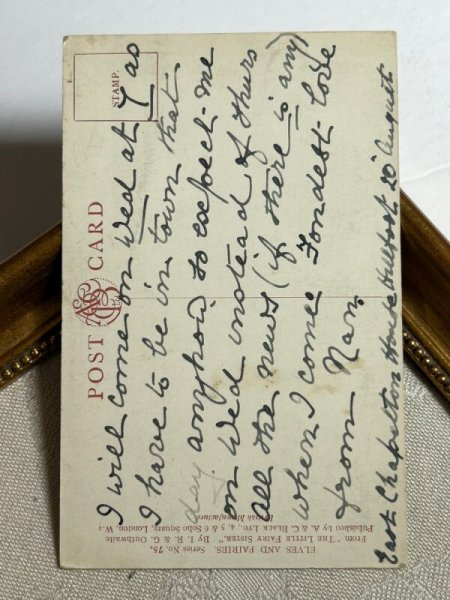 POST CARD
STAMP.
I will come on Wed at 7 as
I have to be in town that
day anyhow so expect me
on Wed instead of thurs
all the news (if there is any)
when I come Fondest love
from Nan
East Chapelton House 20 August
ELVES AND FAIRIES. Series No. 75.
From "THE LITTLE FAIRY SISTER." By I. R. & G. Outhwaite
Published by A. & C. BLACK, LTD., 4, 5 & 6 Soho Square, London, W. 1
British Manufacture